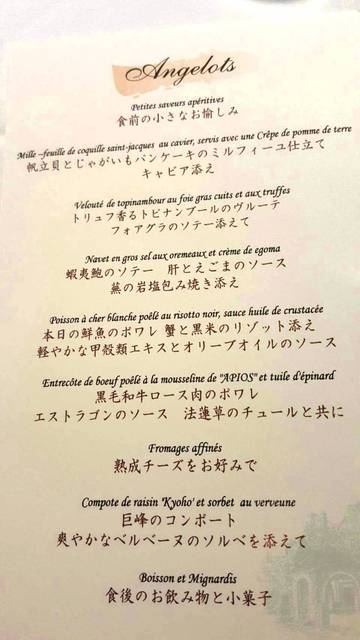 Angelots
Petites saveurs apéritives
食前の小さなお愉しみ
Mille –feuille de coquille saint-jacques au caviar, servis avec une Crêpe de pomme de terre
帆立貝とじゃがいもパンケーキのミルフィーユ仕立て
キャビア添え
Velouté de topinambour au foie gras cuits et aux truffes
トリュフ香るトピナンブールのヴルーテ
フォアグラのソテー添えて
Navet en gros sel aux oremeaux et crème de egoma
蝦夷鮑のソテー 肝とえごまのソース
蕪の岩塩包み焼き添え
Poisson à cher blanche poêlé au risotto noir, sauce huile de crustacée
本日の鮮魚のポワレ 蟹と黒米のリゾット添え
軽やかな甲殻類エキスとオリーブオイルのソース
Entrecôte de boeuf poêlé à la mousseline de "APIOS" et tuile d'épinard
黒毛和牛ロース肉のポワレ
エストラゴンのソース 法蓮草のチュールと共に
Fromages affinés
熟成チーズをお好みで
Compote de raisin 'Kyoho' et sorbet au verveune
巨峰のコンポート
爽やかなベルベーヌのソルベを添えて
Boisson et Mignardis
食後のお飲み物と小菓子